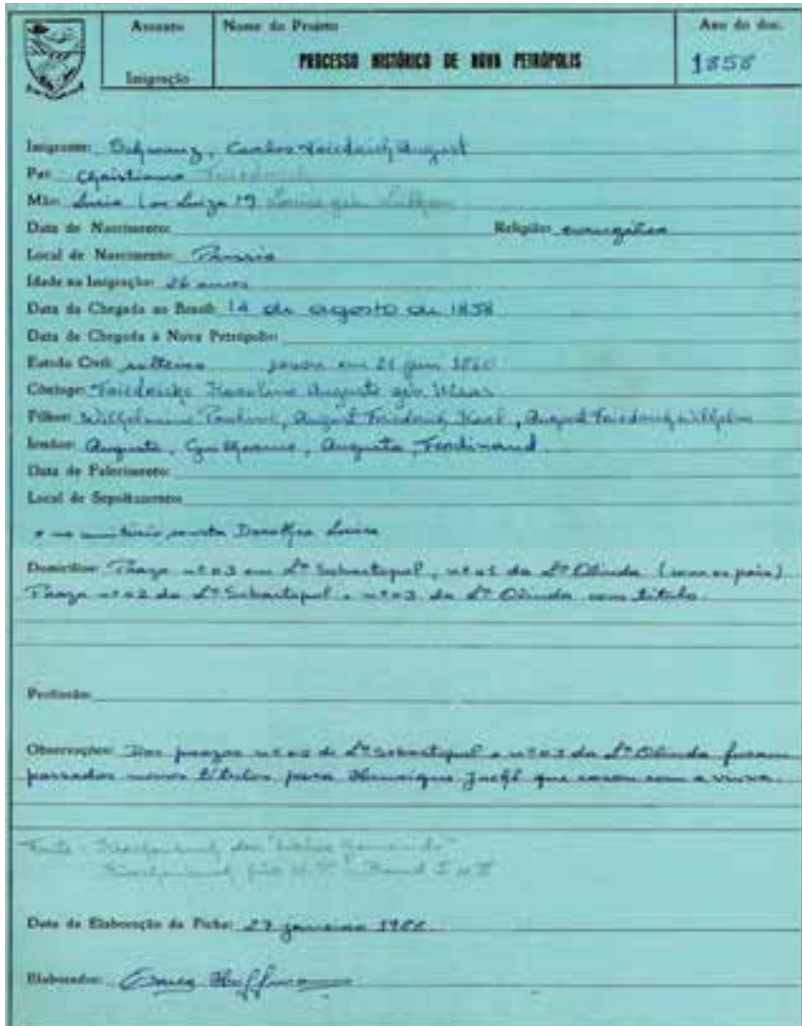 Assunto
Nome do Projeto
Ano do doc.
Imigração
PROCESSO HISTÓRICO DE NOVA PETRÓPOLIS
1858
Imigrante: Schwanz, Carlos Friedrich August
Pai: Christiano Friedrich
Mãe: Luzia (ou Luiza ?) Louise geb.
Data de Nascimento:
Religião: evangélica
Local de Nascimento: Prússia
Idade na Imigração: 26 anos
Data da Chegada ao Brasil: 14 de agosto de 1858
Data de Chegada à Nova Petrópolis:
Estado Civil: solteiro em 21 jan 1860
Cônjuge: Friedericke Karoline Auguste geb.
Filhos: Wilhelmine Pauline, August Friedrich Karl, August Friedrich Wilhelm
Irmãos: Augusto, Guilherme, Augusta, Ferdinand.
Data de Falecimento:
Local de Sepultamento:
Dorothea Luise
Domicílio: Prazo nº 03 em Lª Sebastopol, nº 01 da Lª Olinda (com os pais)
Prazo nº 02 da Lª Sebastopol e nº 03 da Lª Olinda com título.
Profissão:
Observações: Dos prazos nº 02 de Lª Sebastopol e nº 03 da Lª Olinda foram
passados novos títulos para Henrique que casou com a viúva.
Fonte:
Band I u II
Data da Elaboração da Ficha: 27 janeiro
Elaborador: Hoffmann